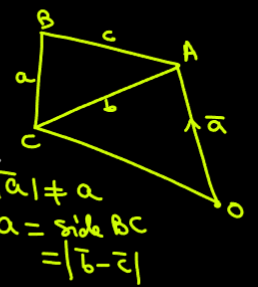 B
c
A
a
b
C
a̅
O
|a̅| ≠ a
a = side BC
= |b̅ - c̅|